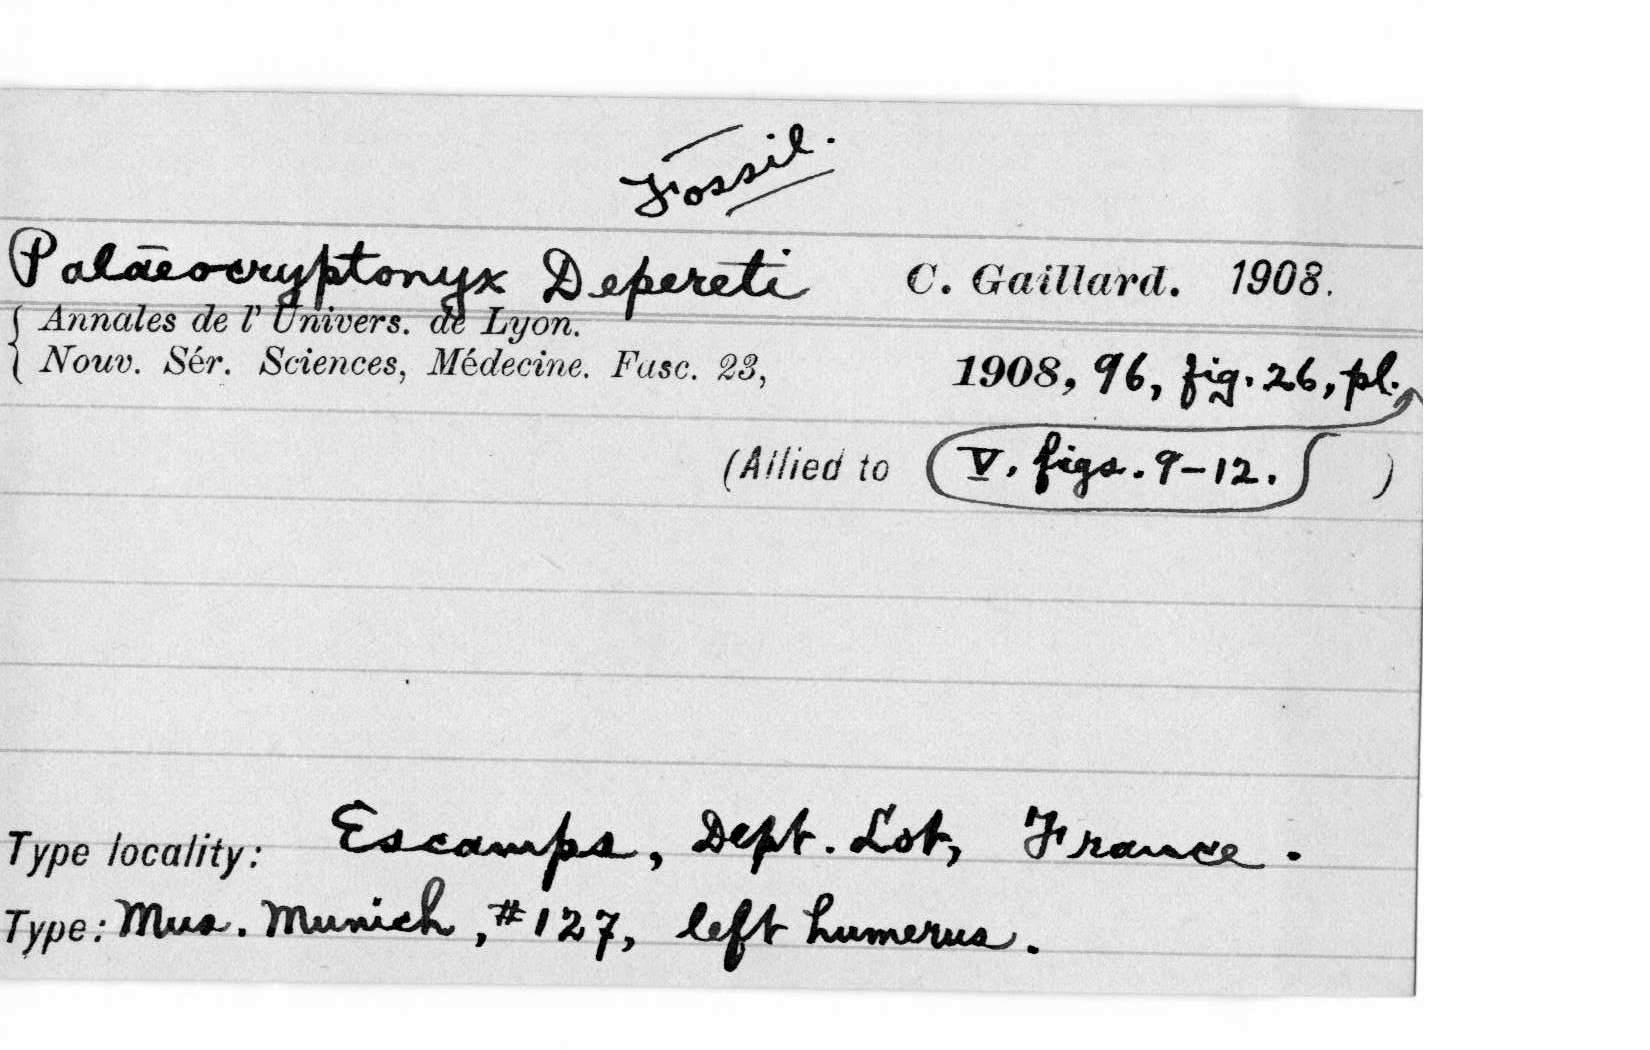 Fossil.
Palaeocryptonyx Depereti C. Gaillard. 1908.
Annales de l' Univers. de Lyon.
Nouv. Sér. Sciences, Médecine. Fasc. 23, 1908, 96, fig. 26, pl.
(Allied to V. figs. 9-12. )
Type locality: Escamps, Dept. Lot, France.
Type: Mus. Munich, #127, left humerus.